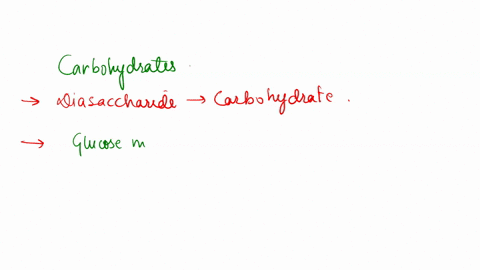 Carbohydrates.
→ Diasaccharide → Carbohydrate.
→ Glucose m